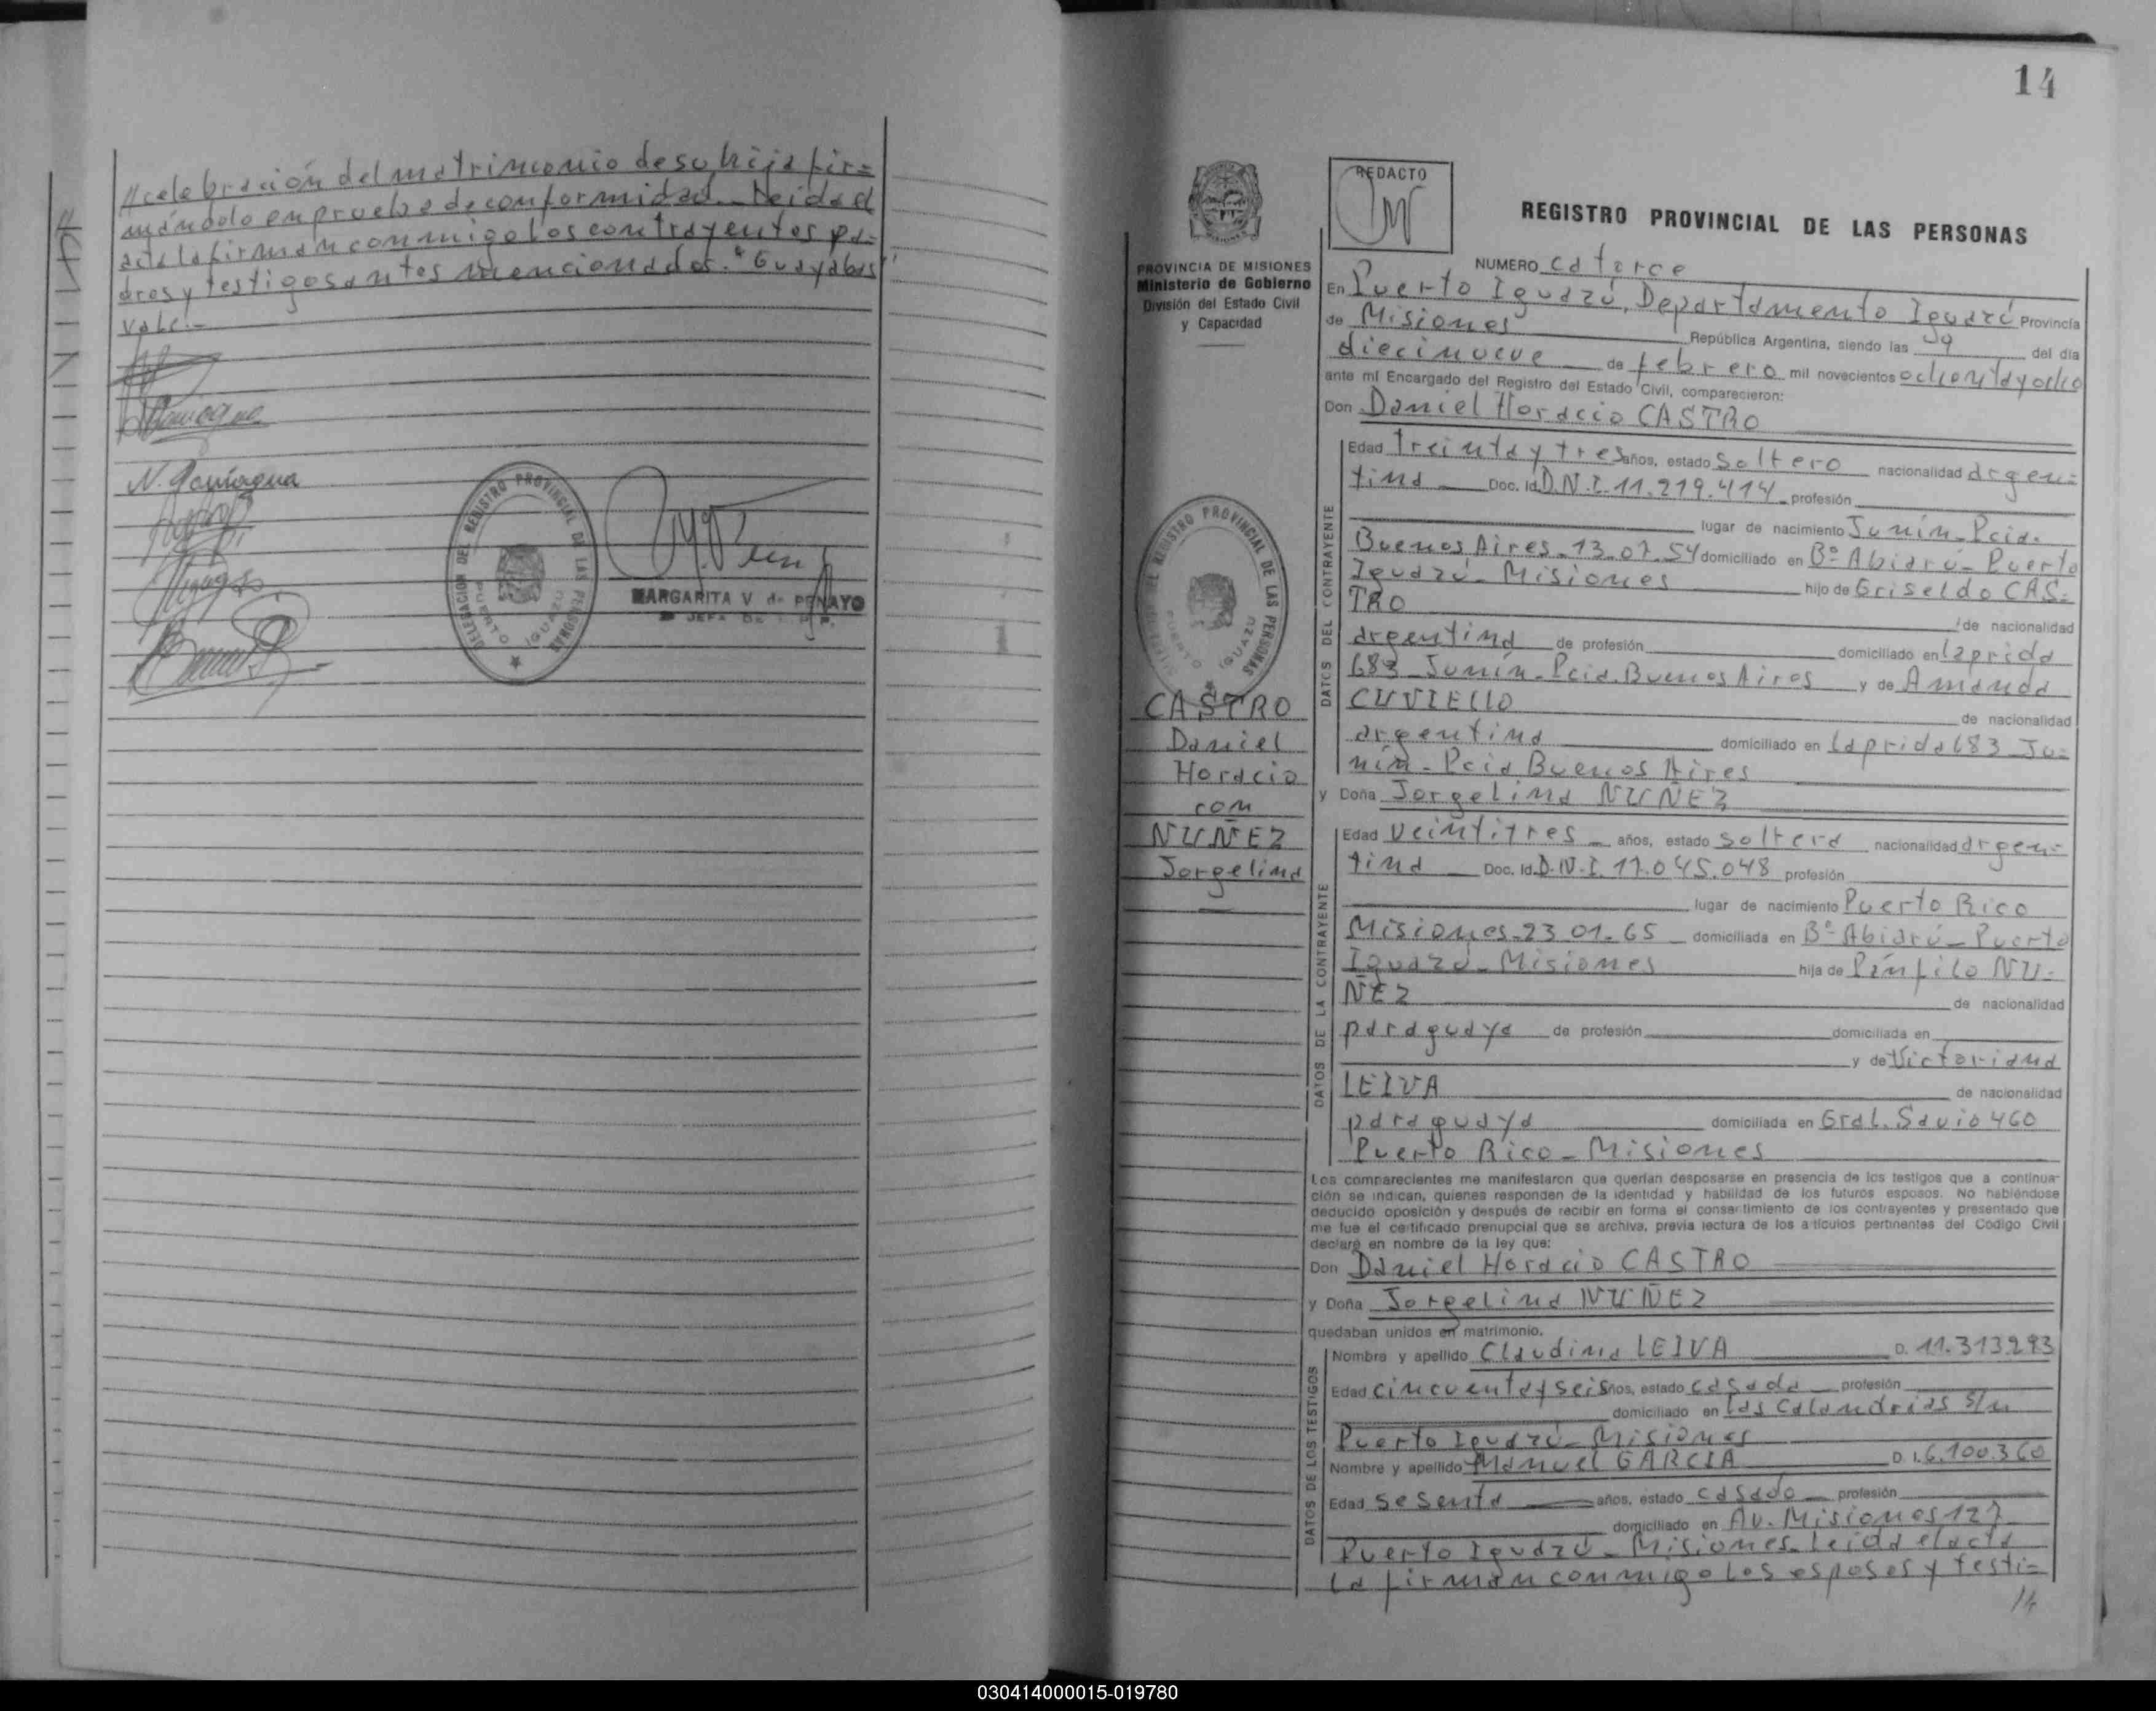 //celebración del matrimonio de su hija fir=
mándolo en prueba de conformidad. Leida el
acta la firman conmigo los contrayentes pa-
dres y testigos antes mencionados. "Guayabas"
vale.-
N. Paniagua
DELEGACION DEL REGISTRO PROVINCIAL DE LAS PERSONAS
PUERTO IGUAZU
MARGARITA V. de PENAYO
14
REDACTO
REGISTRO PROVINCIAL DE LAS PERSONAS
PROVINCIA DE MISIONES
Ministerio de Gobierno
División del Estado Civil
y Capacidad
REGISTRO PROVINCIAL DE LAS PERSONAS
PUERTO IGUAZU
CASTRO
Daniel
Horacio
con
NUÑEZ
Jorgelina
NUMERO catorce
En Puerto Iguazú, Departamento Iguazú Provincia
de Misiones República Argentina, siendo las 09 del día
diecinueve de febrero mil novecientos ochenta y ocho
ante mí Encargado del Registro del Estado Civil, comparecieron:
Don Daniel Horacio CASTRO
DATOS DEL CONTRAYENTE
Edad treinta y tres años, estado soltero nacionalidad argen=
tina Doc. Id. D.N.I. 11.219.414 profesión
lugar de nacimiento Junín Pcia.
Buenos Aires 13.07.54 domiciliado en Bº Abiarú Puerto
Iguazú Misiones hijo de Griseldo CAS=
TRO de nacionalidad
argentina de profesión domiciliado en Laprida
683 Junín Pcia. Buenos Aires y de Amanda
CUVIELLO de nacionalidad
argentina domiciliado en Laprida 683 Ju=
nín Pcia Buenos Aires
y Doña Jorgelina NUÑEZ
DATOS DE LA CONTRAYENTE
Edad veintitres años, estado soltera nacionalidad argen=
tina Doc. Id. D.N.I. 17.045.048 profesión
lugar de nacimiento Puerto Rico
Misiones 23.01.65 domiciliada en Bº Abiarú Puerto
Iguazú Misiones hija de Pánfilo NU-
ÑEZ de nacionalidad
paraguaya de profesión domiciliada en
y de Victoriana
LEIVA de nacionalidad
paraguaya domiciliada en Gral. Savio 460
Puerto Rico Misiones
Los comparecientes me manifestaron que querían desposarse en presencia de los testigos que a continua-
ción se indican, quienes responden de la identidad y habilidad de los futuros esposos. No habiéndose
deducido oposición y después de recibir en forma el consentimiento de los contrayentes y presentado que
me fue el certificado prenupcial que se archiva, previa lectura de los artículos pertinentes del Código Civil
declaré en nombre de la ley que:
Don Daniel Horacio CASTRO
y Doña Jorgelina NUÑEZ
quedaban unidos en matrimonio.
DATOS DE LOS TESTIGOS
Nombre y apellido Claudina LEIVA D. 11.313.293
Edad cincuenta y seis años, estado casada profesión
domiciliado en Las Calandrias S/n
Puerto Iguazú Misiones
Nombre y apellido Manuel GARCIA D. I. 6.100.360
Edad sesenta años, estado casado profesión
domiciliado en Av. Misiones 127
Puerto Iguazú Misiones. Leida el acta
la firman conmigo los esposos y testi=
030414000015-019780